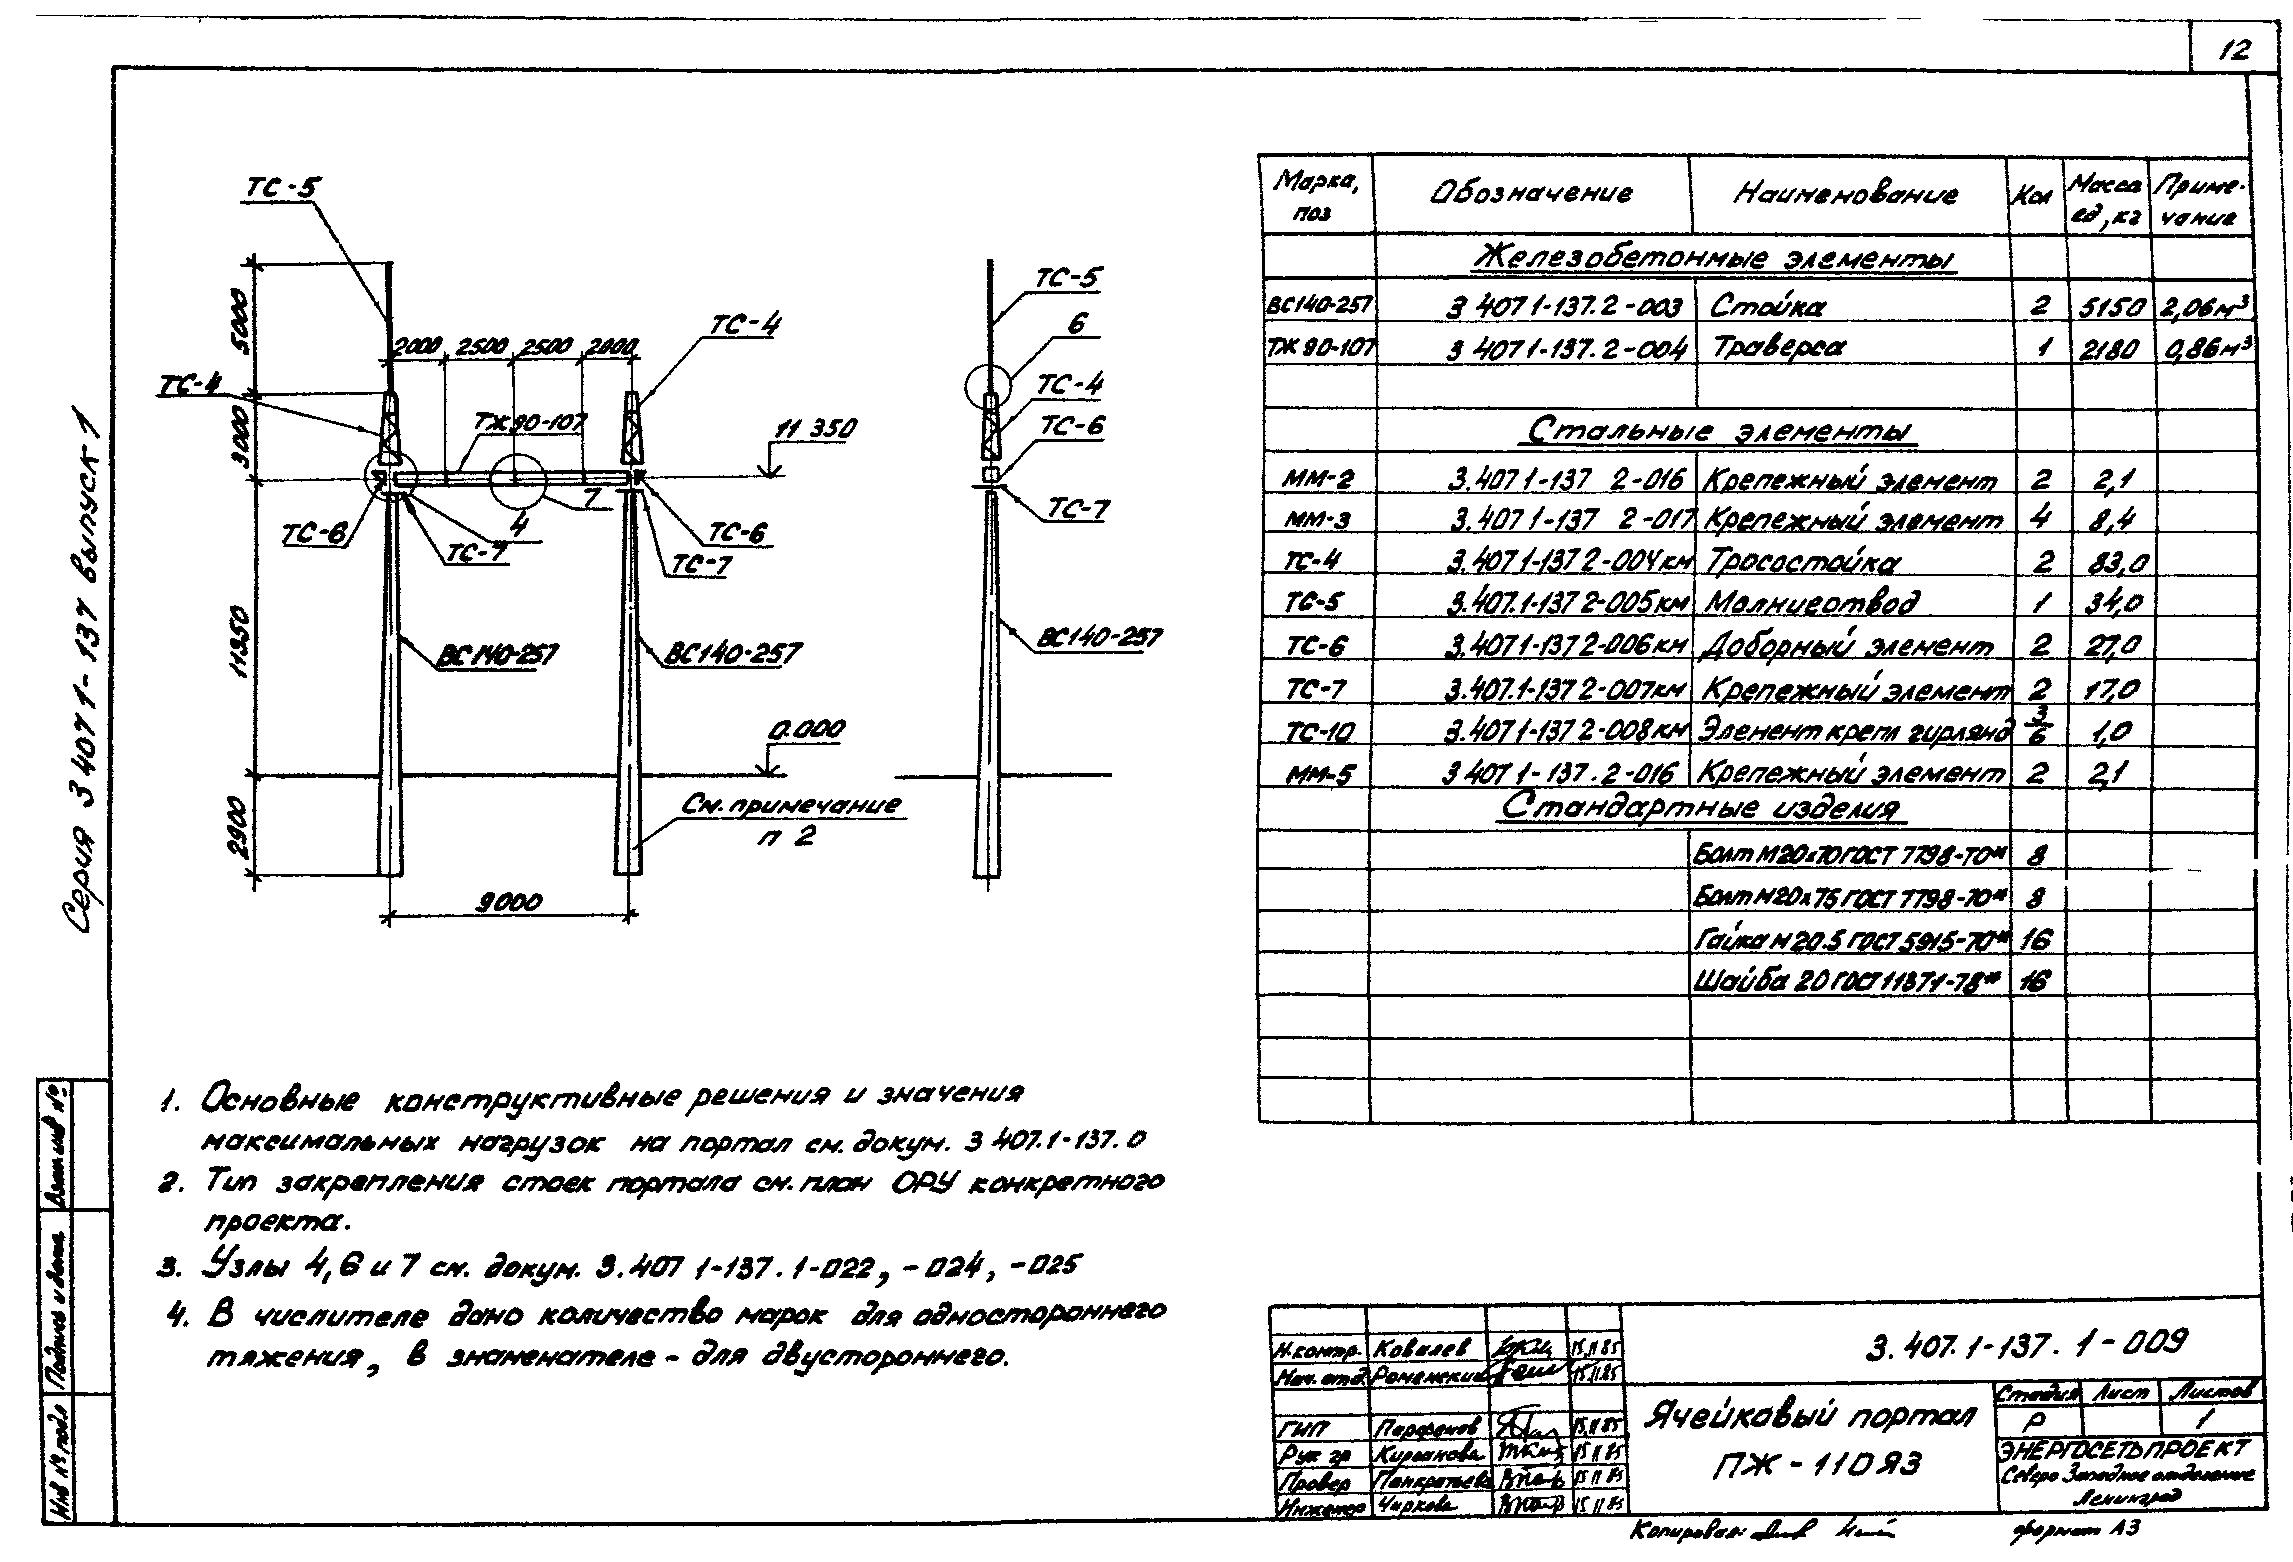 12
Серия 3 407 1-137 выпуск 1
ТС-5
5000
2000 2500 2500 2000
ТС-4
ТС-4
3000
ТЖ 90-107
11 350
7
4
ТС-6
ТС-7
ТС-6
ТС-7
11350
ВС 140-257
ВС 140-257
0.000
2900
См. примечание
п 2
9000
ТС-5
6
ТС-4
ТС-6
ТС-7
ВС 140-257
Марка, поз Обозначение Наименование Кол Масса ед, кг Приме-чание
Железобетонные элементы
ВС140-257 3 407 1-137. 2-003 Стойка 2 5150 2,06 м³
ТЖ 90-107 3 407 1-137. 2-004 Траверса 1 2180 0,86 м³
Стальные элементы
ММ-2 3.407 1-137 2-016 Крепежный элемент 2 2,1
ММ-3 3.407 1-137 2-017 Крепежный элемент 4 8,4
ТС-4 3.407 1-137 2-004 км Тросостойка 2 83,0
ТС-5 3.407.1-137 2-005 км Молниеотвод 1 34,0
ТС-6 3.407 1-137 2-006 км Доборный элемент 2 27,0
ТС-7 3.407.1-137 2-007 км Крепежный элемент 2 17,0
ТС-10 3.407 1-137 2-008 км Элемент креп гирлянд 3/6 1,0
ММ-5 3 407 1-137. 2-016 Крепежный элемент 2 2,1
Стандартные изделия
Болт М20х70 ГОСТ 7798-70* 8
Болт М20х75 ГОСТ 7798-70* 8
Гайка М 20.5 ГОСТ 5915-70* 16
Шайба 20 ГОСТ 11371-78* 16
1. Основные конструктивные решения и значения
максимальных нагрузок на портал см. докум. 3 407.1-137. 0
2. Тип закрепления стоек портала см. план ОРУ конкретного
проекта.
3. Узлы 4, 6 и 7 см. докум. 3.407 1-137. 1-022, -024, -025
4. В числителе дано количество марок для одностороннего
тяжения, в знаменателе - для двустороннего.
Взам инв №
Подпись и дата
Инв № подл
Н.контр. Ковалев 15.11.85
Нач. отд Роменский 15.11.85
ГИП Парфенов 15.11.85
Рук гр Кирсанова 15 11 85
Провер Панкратьева 15 11 85
Инженер Чиркова 15 11 85
3. 407. 1-137. 1-009
Ячейковый портал
ПЖ-110 Я3
Стадия Лист Листов
Р 1
ЭНЕРГОСЕТЬПРОЕКТ
Северо Западное отделение
Ленинград
Копировал
формат А3